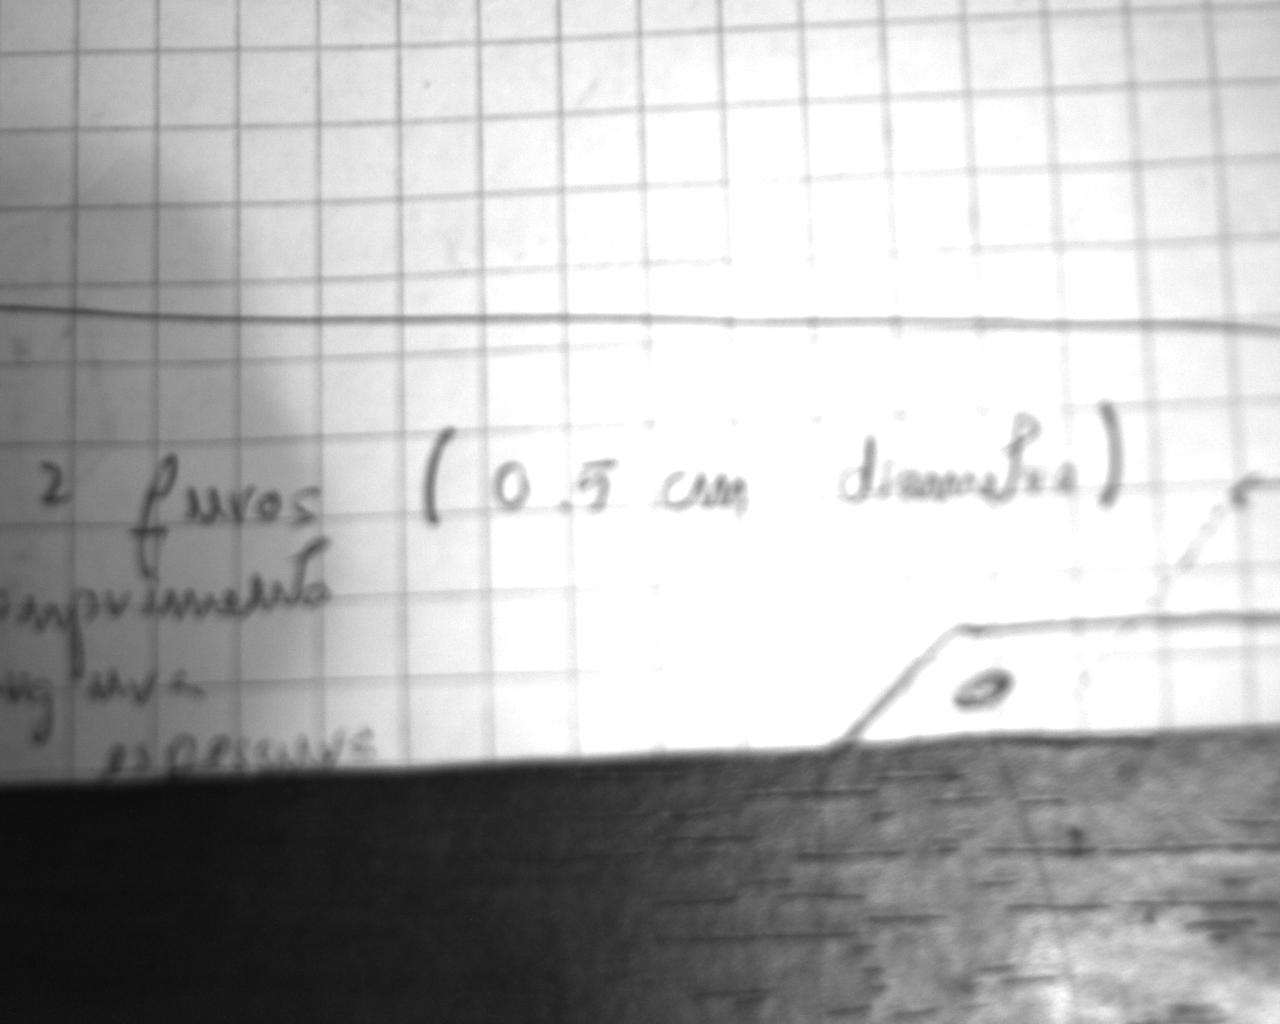 2 furos (0.5 cm diametro)
omprimento
espessura